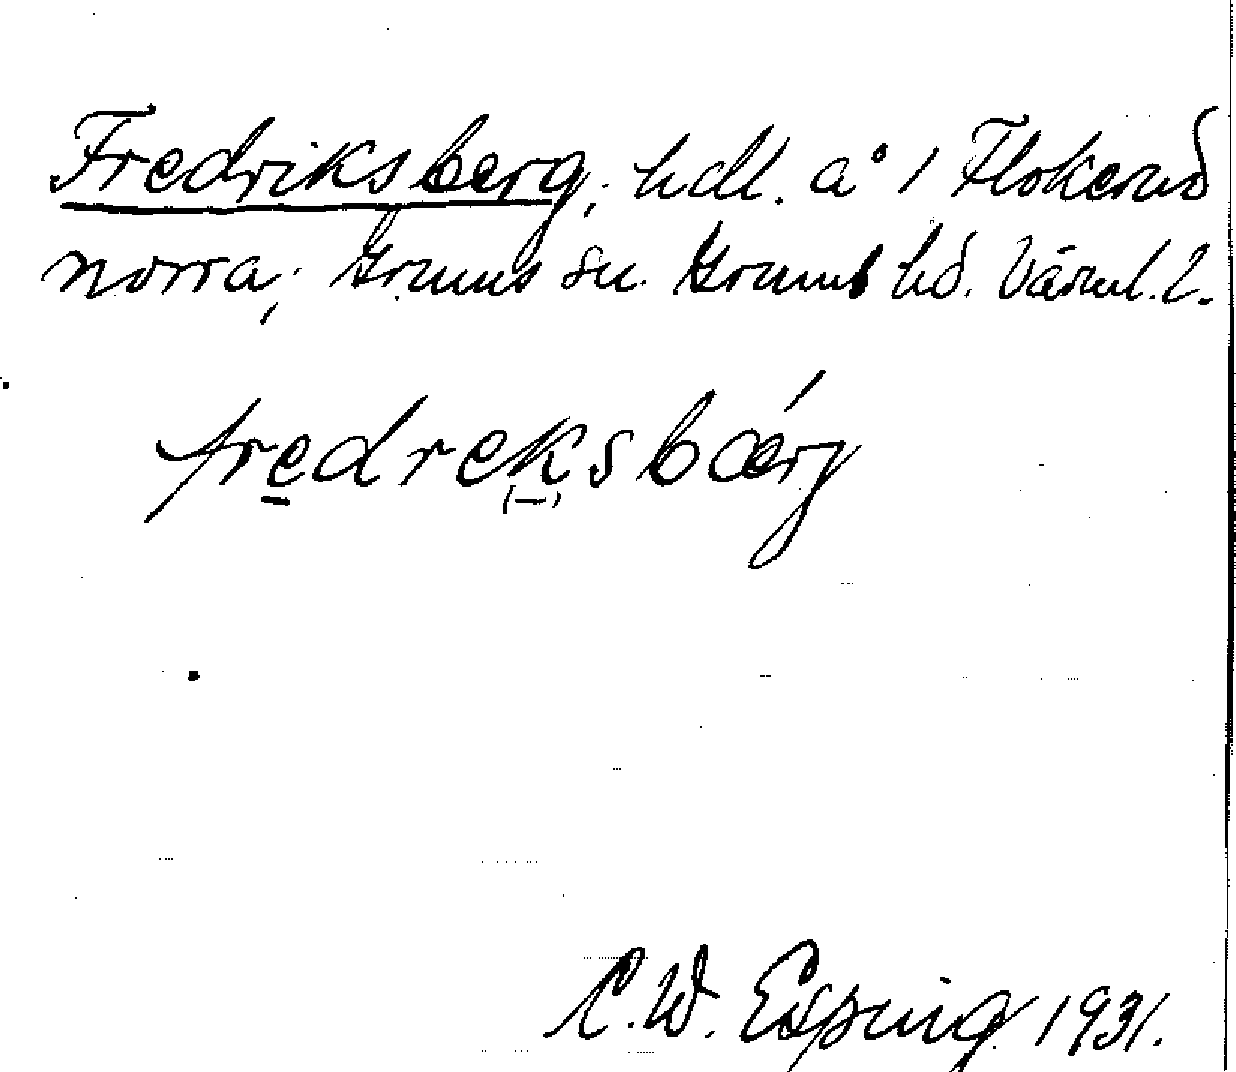 Fredriksberg, hdl. å 1 Flokerud
norra, Grums sn. Grums hd. Värml. l.
fredreksbærg
(–)
C. W. Esping 1931.